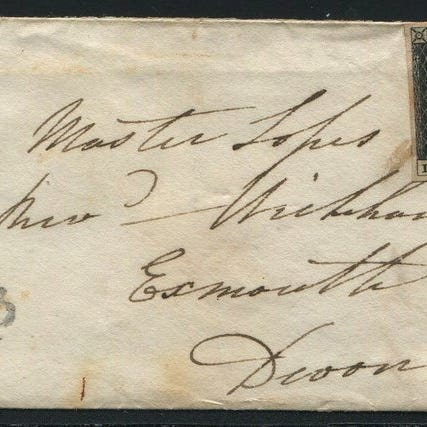 Master Lopes
Revd Wickham
Exmouth
Devon